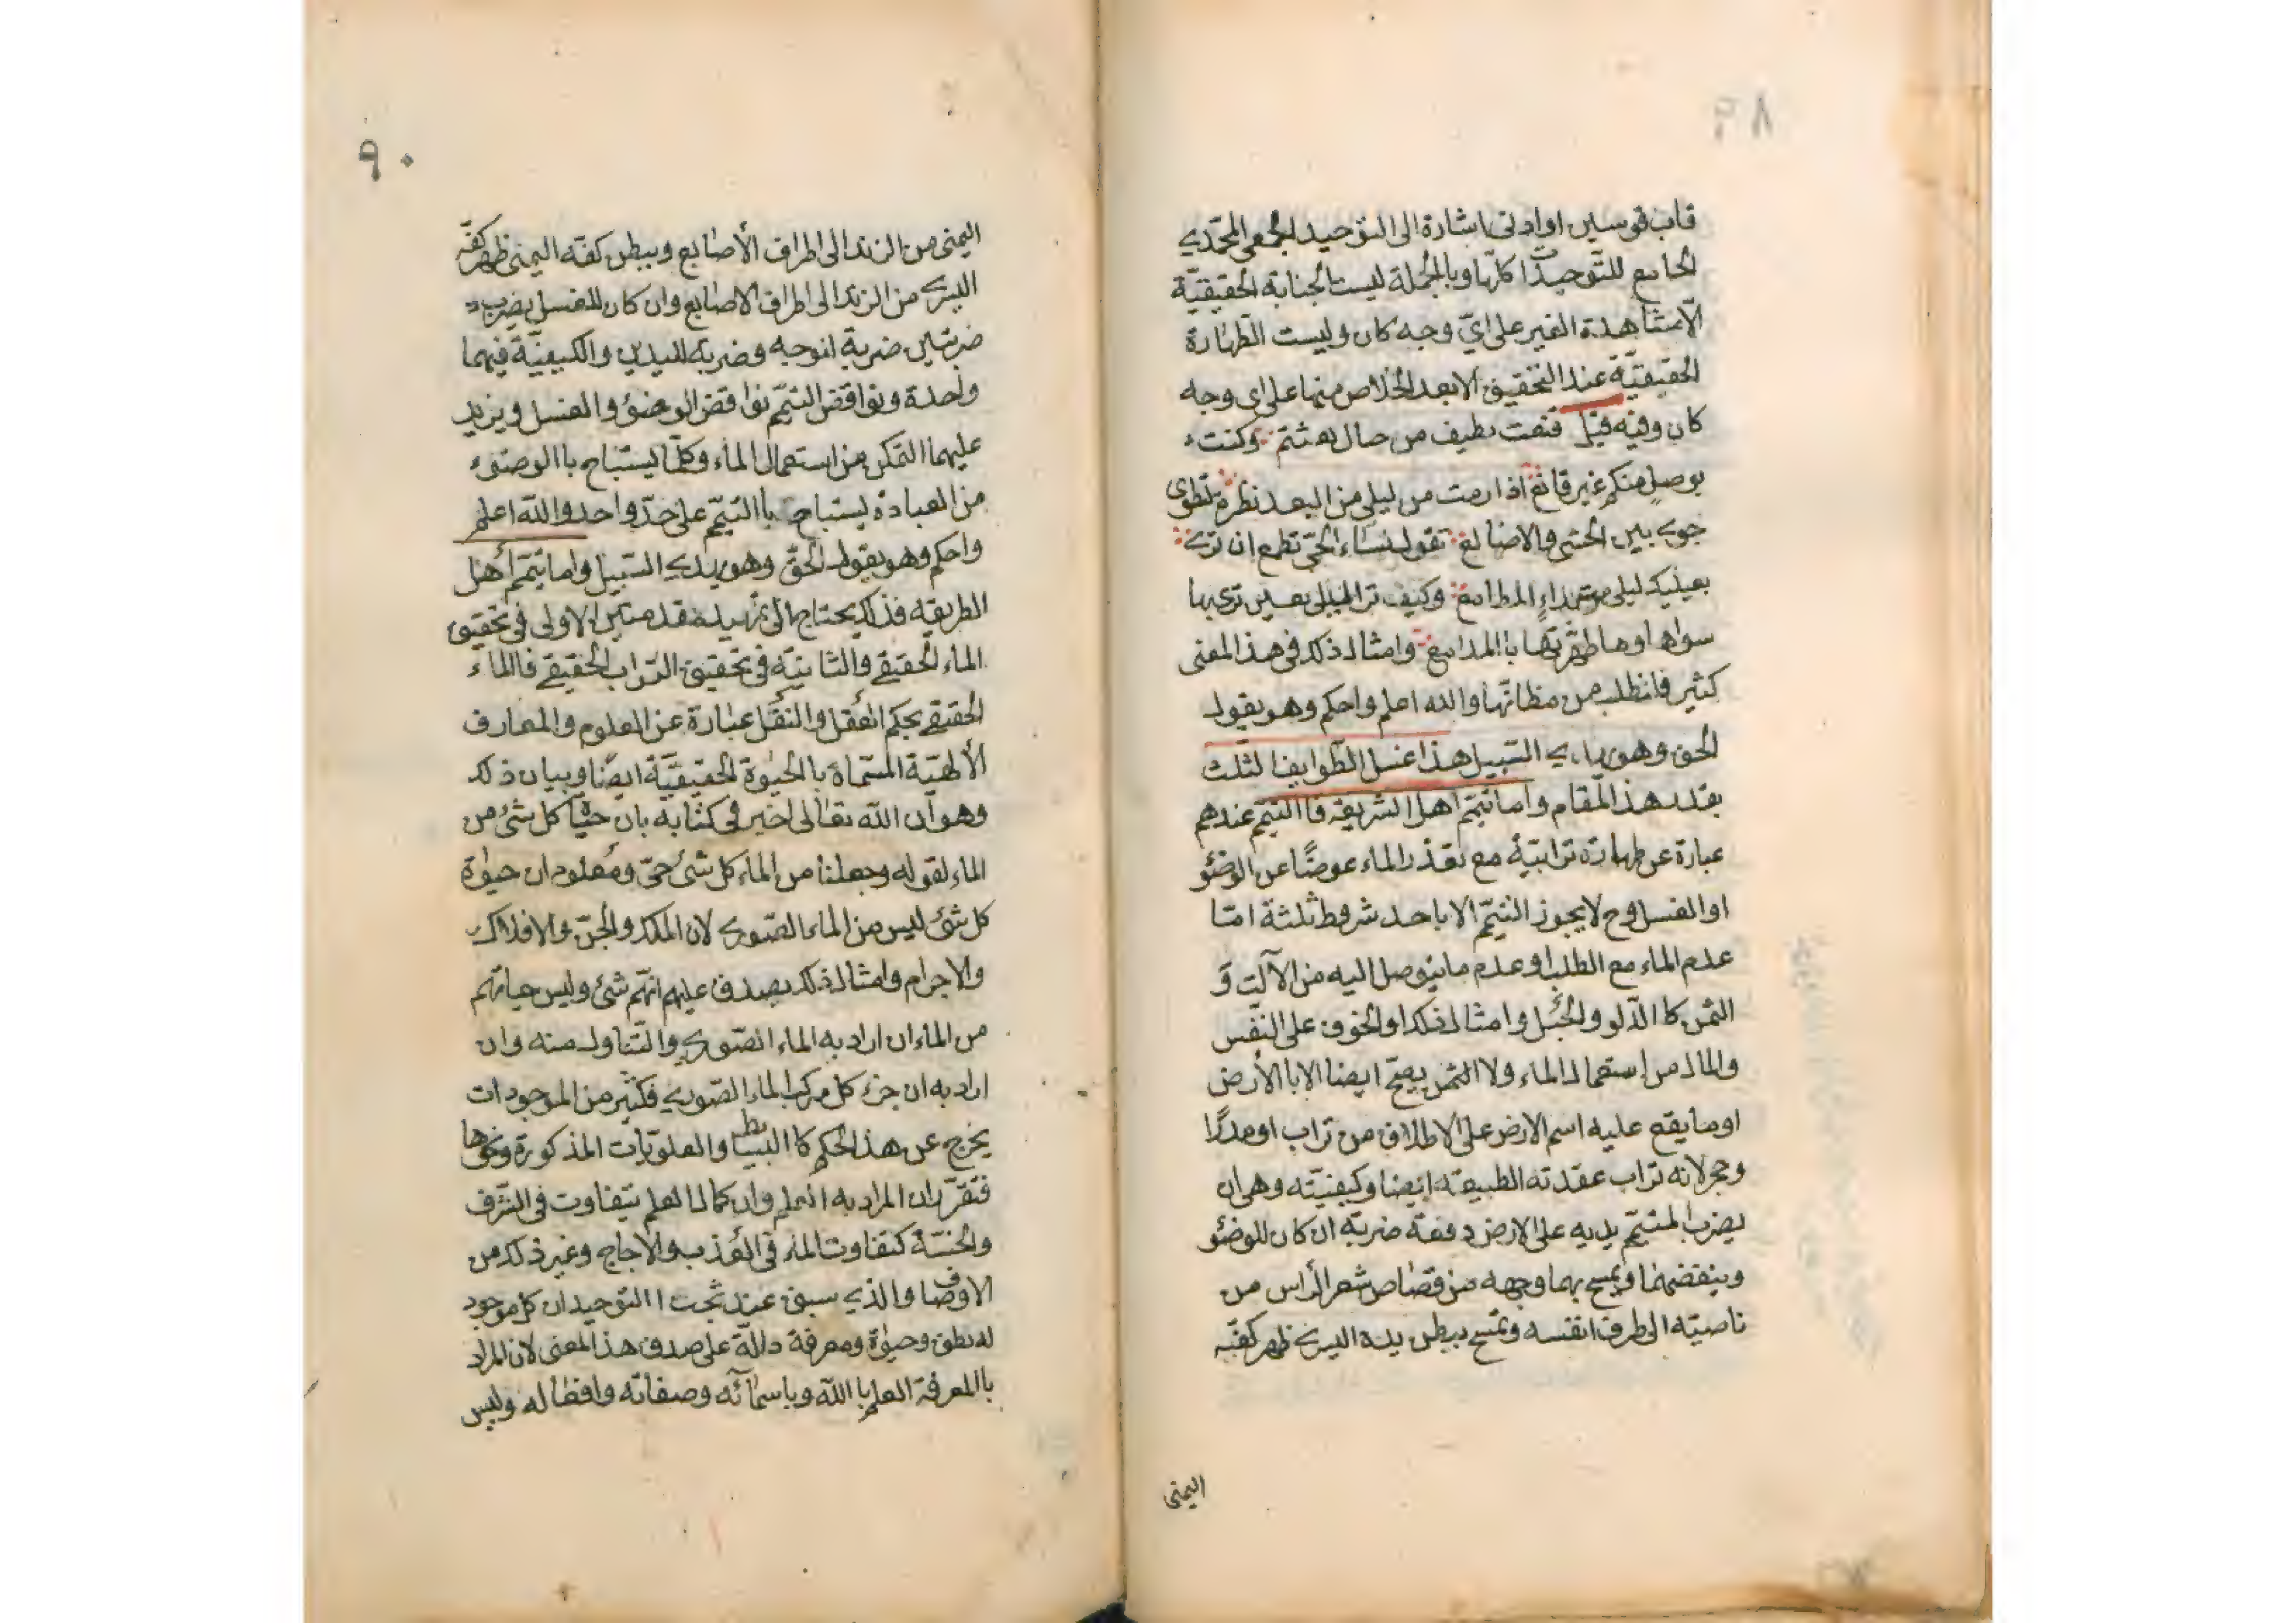 ٨٩
قاب قوسين او ادنى اشارة الى التوحيد الجمعى المحمّدي
الجامع للتّوحيدات كلّها وبالجملة ليست الجنابة الحقيقيّة
الّا مشاهدة الغير على ايّ وجه كان وليست الطّهارة
الحقيقيّة عند التحقيق الا بعد الخلاص منها على اى وجه
كان وفيه قيل قنعت بطيف من خيال بعثتم وكنت
بوصل منكم غير قانع اذا رمت من ليلى من البعد نظرة لتطفى
جوى بين الحشى والاضالع تقول نساء الحّى تطمع ان ترى
بعينيك ليلى مت بداء المطامع وكيف ترى ليلى بعين ترى بها
سواها وما طهّرتها باالمدامع وامثال ذلك فى هذ المعنى
كثير فانطلب من مظانّها والله اعلم واحكم وهو يقول
الحق وهو يهدي السّبيل هذا غسل الطّوايف الثلث
بقدر هذ المقام واما تيمّم اهل الشريعة فاالتيمّم عندهم
عبارة عن طهارة ترابيّة مع تعذر الماء عوضًا عن الوضؤ
او الغسل وح لا يجوز التيمّم الا باحد شروط ثلثة امّا
عدم الماء مع الطلب او عدم ما يتوصل اليه من الآلت وَ
الثمن كا الدّلو والحبل وامثال ذلك او الخوف على النّفس
والمال من استعمال الماء ولا التمن يصحّ ايضا الا باالأرض
او ما يقع عليه اسم الارض على الاطلاق من تراب او مدرًا
وحجر لانه تراب عقدته الطبيعة ايضا وكيفيّته وهى ان
يضرب المتيمّم يديه على الارض دفعة ضربة ان كان للوضؤ
وينفضهما ويمسح بهما وجهه من قصاص شعر الرأس من
ناصيته الى طرف انفه وتمسح ببطن يده اليسرى ظهر كفّه
اليمنى
٩٠
اليمنى من الزند الى اطراف الأصابع وببطن كفّه اليمنى ظهر كفّه
اليسرى من الزند الى اطراف الاصابع وان كان للغسل يضرب
ضربتين ضربة لوجه وضربة لليدين والكيفيّة فيهما
واحدة ونواقض التيمّم نواقض الوضؤ والغسل ويزيد
عليهما التمكن من استعمال الماء وكلّما يستباح باالوضوء
من العبادة يستباح باالتيمّم على حدّ واحد والله اعلم
واحكم وهو يقول الحقّ وهو يهدي السّبيل واما تيمّم أهل
الطريقة فذلك يحتاج الى تمهيد مقدمتين الاولى فى تحقيق
الماء الحقيقي والثانية فى تحقيق التّراب الحقيقي فاالماء
الحقيقي بحكم العقل والنقل عبارة عن العلوم والمعارف
الألهيّة المسمّاة باالحيوة الحقيقيّة ايضًا وبيان ذلك
وهو انّ الله تعالى اخبر فى كتابه بان حيوة كل شئ من
الماء لقوله وجعلنا من الماء كل شئ حىّ ومعلوم ان حيوة
كل شئ ليس من الماء الصّورى لان الملك والجنّ والافلاك
والاجرام وامثال ذلك يصدق عليهم انّهم شئ وليس حياتهم
من الماء ان اراد به الماء الصّوري والتّناول منه وان
اراد به ان جزء كل مركب الماء الصّوري فكثير من الموجودات
يخرج عن هذ الحكم كا البسايط والعلويّات المذكورة ونحوها
فتقرّر ان المراد به العلم وان كمال العلم يتفاوت فى الشّرف
والخسّة كتفاوت الماء فى العذب والأجاج وغير ذلك من
الاوصاف والذي سبق عند بحث االتوحيد ان كل موجود
له نطق وحيوة ومعرفة دالّة على صدق هذا المعنى لان المراد
باالمعرفة العلم باالله وباسمآئه وصفاته وافعاله وليس